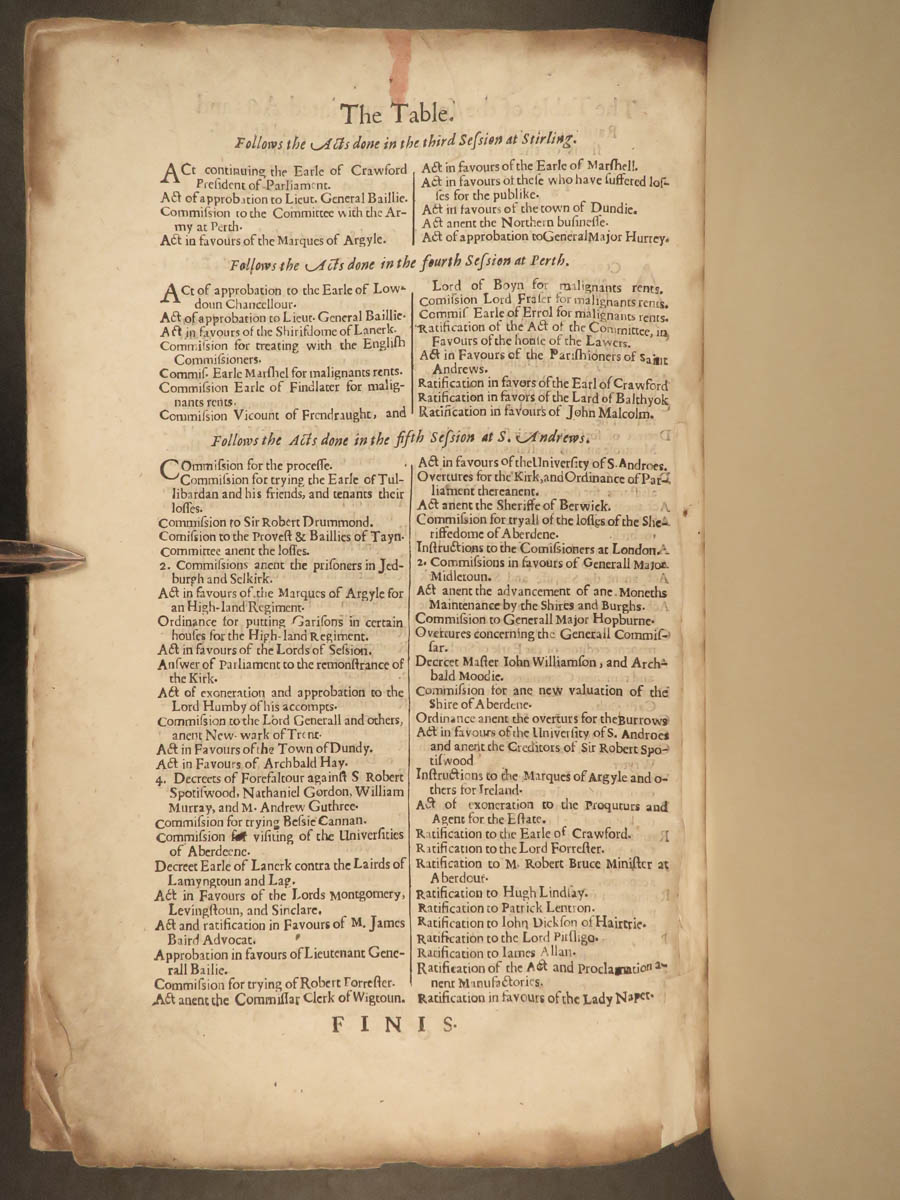 The Table.
Follows the Acts done in the third Seſsion at Stirling.
ACt continuing the Earle of Crawford
Preſident of Parliament.
Act of approbation to Lieut. General Baillie.
Commiſsion to the Committee with the Ar-
my at Perth.
Act in favours of the Marques of Argyle.
Act in favours of the Earle of Marſhell.
Act in favours of theſe who have ſuffered loſ-
ſes for the publike.
Act in favours of the town of Dundie.
Act anent the Northern buſineſſe.
Act of approbation to General Major Hurrey.
Follows the Acts done in the fourth Seſsion at Perth.
ACt of approbation to the Earle of Low-
doun Chancellour.
Act of approbation to Lieut. General Baillie.
Act in favours of the Shirifdome of Lanerk.
Commiſsion for treating with the Engliſh
Commiſsioners.
Commiſ. Earle Marſhel for malignants rents.
Commiſsion Earle of Findlater for malig-
nants rents.
Commiſsion Vicount of Frendraught, and
Lord of Boyn for malignants rents.
Comiſsion Lord Fraſer for malignants rents.
Commiſ Earle of Errol for malignants rents.
Ratification of the Act of the Committee, in
Favours of the houſe of the Lawers.
Act in Favours of the Pariſhioners of Saint
Andrews.
Ratification in favors of the Earl of Crawford
Ratification in favors of the Lard of Balthyok
Ratification in favours of John Malcolm.
Follows the Acts done in the fifth Seſsion at S. Andrews.
COmmiſsion for the proceſſe.
Commiſsion for trying the Earle of Tul-
libardan and his friends, and tenants their
loſſes.
Commiſsion to Sir Robert Drummond.
Comiſsion to the Proveſt & Baillies of Tayn.
Committee anent the loſſes.
2. Commiſsions anent the priſoners in Jed-
burgh and Selkirk.
Act in favours of the Marques of Argyle for
an High-land Regiment.
Ordinance for putting Gariſons in certain
houſes for the High-land Regiment.
Act in favours of the Lords of Seſsion.
Anſwer of Parliament to the remonſtrance of
the Kirk.
Act of exoneration and approbation to the
Lord Humby of his accompts.
Commiſsion to the Lord Generall and others,
anent New-wark of Trent.
Act in Favours of the Town of Dundy.
Act in Favours of Archbald Hay.
4. Decreets of Forefaltour againſt S Robert
Spotiſwood, Nathaniel Gordon, William
Murray, and M. Andrew Guthree.
Commiſsion for trying Beſsie Cannan.
Commiſsion for viſiting of the Univerſities
of Aberdeene.
Decreet Earle of Lanerk contra the Lairds of
Lamyngtoun and Lag.
Act in Favours of the Lords Montgomery,
Levingſtoun, and Sinclare.
Act and ratification in Favours of M. James
Baird Advocat.
Approbation in favours of Lieutenant Gene-
rall Bailie.
Commiſsion for trying of Robert Forreſter.
Act anent the Commiſſar Clerk of Wigtoun.
Act in favours of the Univerſity of S. Androes.
Overtures for the Kirk, and Ordinance of Par-
liament thereanent.
Act anent the Sheriffe of Berwick.
Commiſsion for tryall of the loſſes of the She-
riffedome of Aberdene.
Inſtructions to the Comiſsioners at London.
2. Commiſsions in favours of Generall Major
Midletoun.
Act anent the advancement of ane Moneths
Maintenance by the Shires and Burghs.
Commiſsion to Generall Major Hopburne.
Overtures concerning the Generall Commiſ-
ſar.
Decreet Maſter Iohn Williamſon, and Arch-
bald Moodie.
Commiſsion for ane new valuation of the
Shire of Aberdene.
Ordinance anent the overturs for the Burrows
Act in favours of the Univerſity of S. Androes
and anent the Creditors of Sir Robert Spo-
tiſwood
Inſtructions to the Marques of Argyle and o-
thers for Ireland.
Act of exoneration to the Proquturs and
Agent for the Eſtate.
Ratification to the Earle of Crawford.
Ratification to the Lord Forreſter.
Ratification to M. Robert Bruce Miniſter at
Aberdour.
Ratification to Hugh Lindſay.
Ratification to Patrick Lentron.
Ratification to Iohn Dickſon of Hairtrie.
Ratification to the Lord Pitſligo.
Ratification to Iames Allan.
Ratification of the Act and Proclamation a-
nent Manufactories.
Ratification in favours of the Lady Naper.
FINIS.